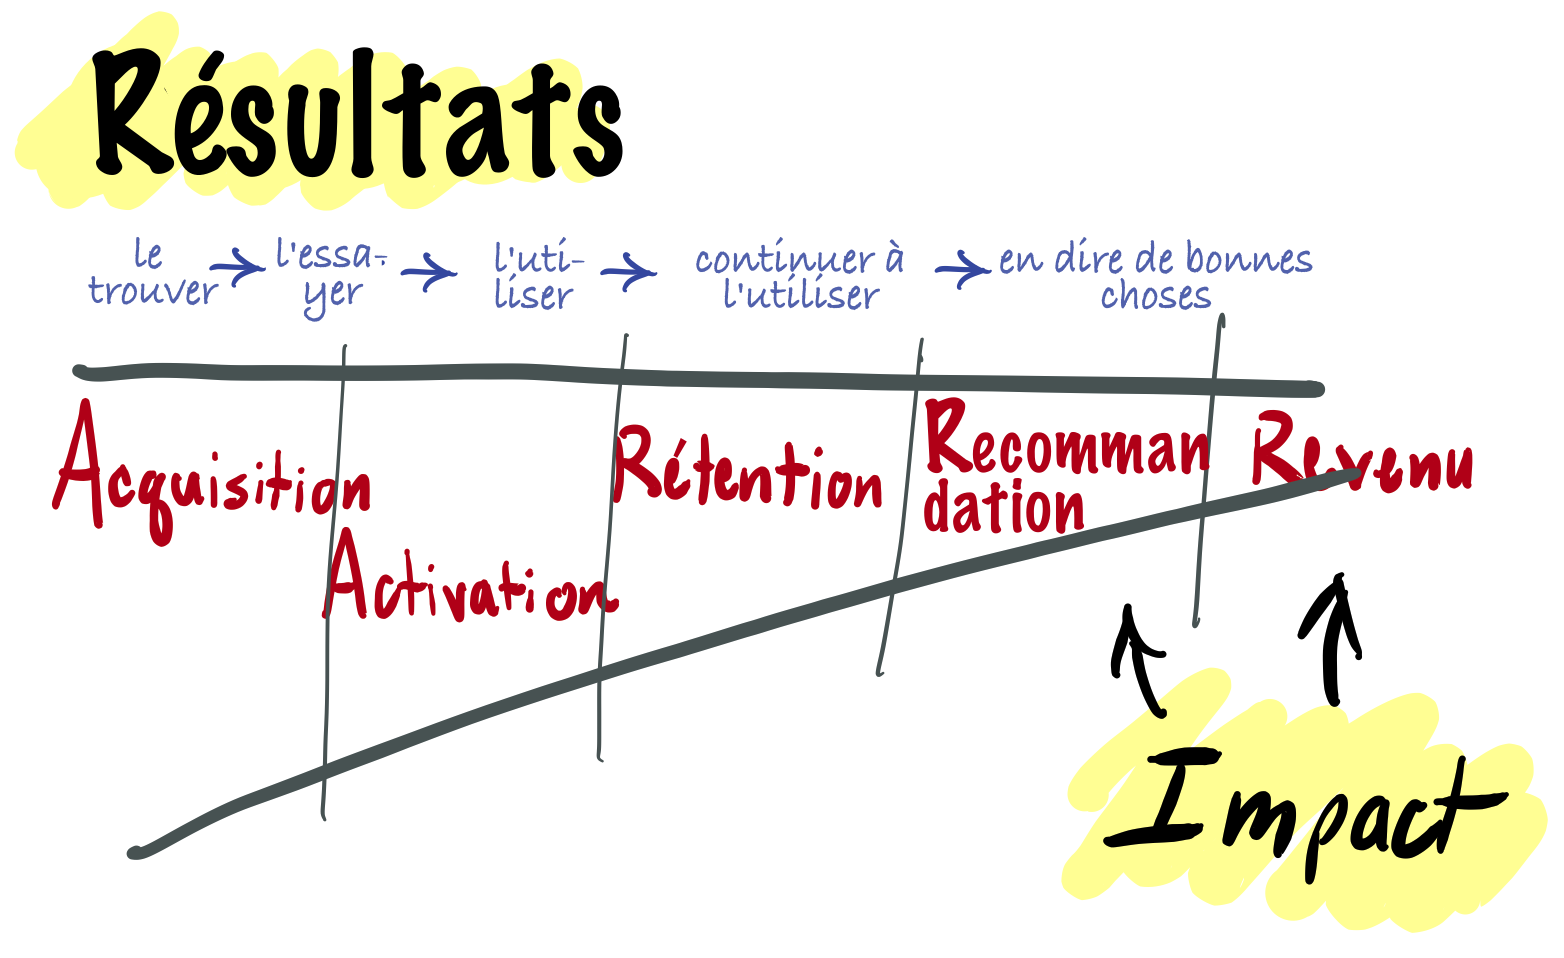 Résultats
le
trouver
l'essa-
yer
l'uti-
liser
continuer à
l'utiliser
en dire de bonnes
choses
Acquisition
Activation
Rétention
Recomman
dation
Revenu
Impact